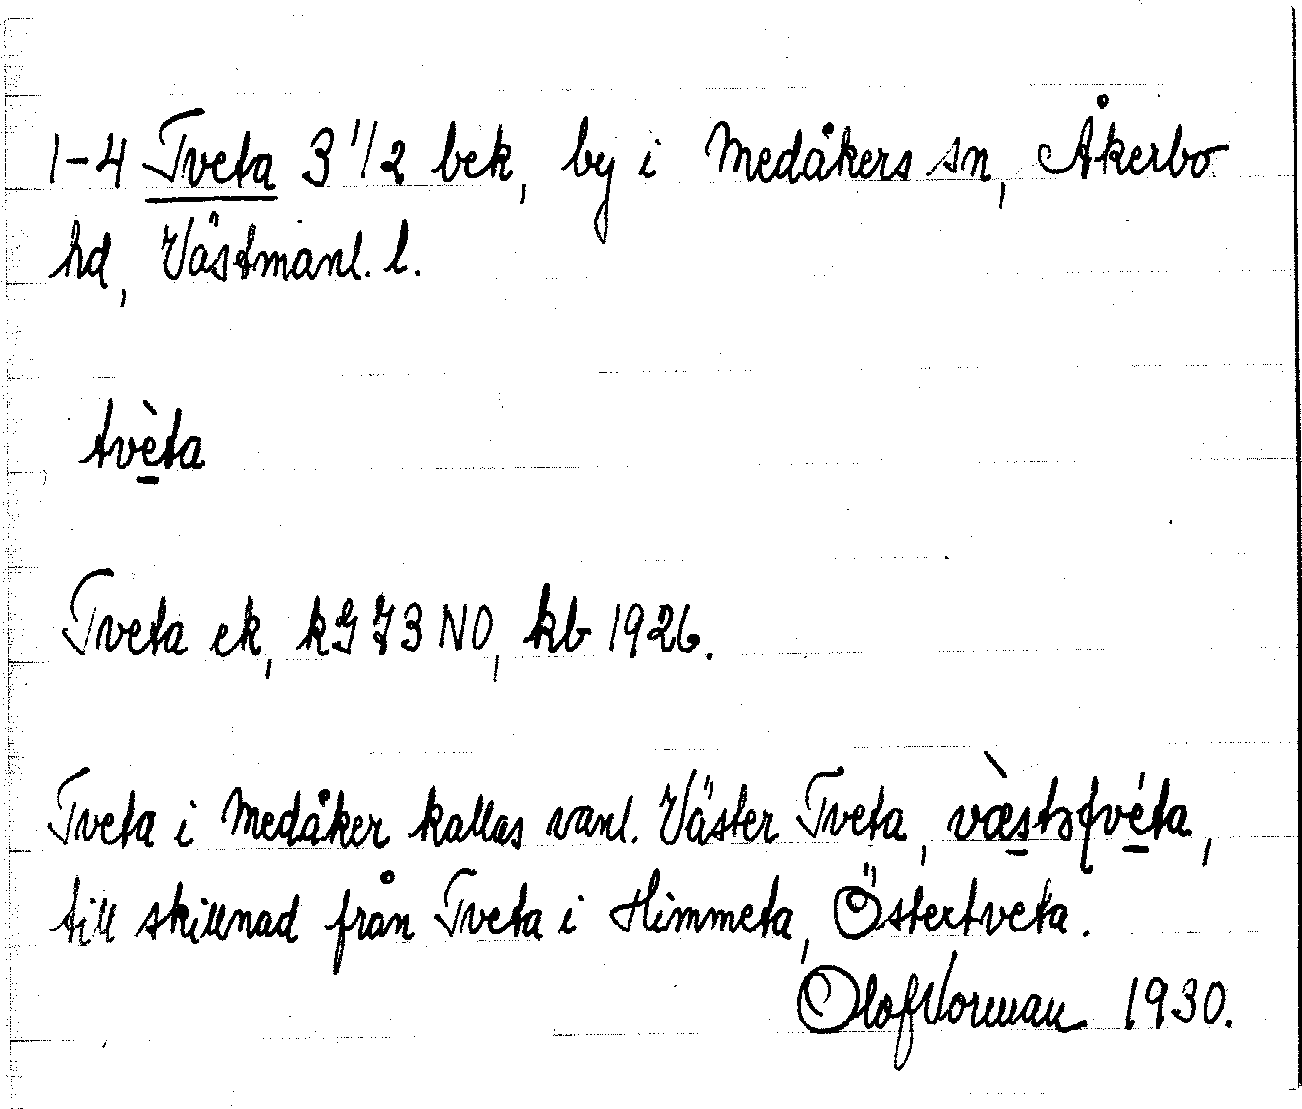 1-4 Tveta 3 1/2 bek, by i Medåkers sn, Åkerbo
hd, Västmanl. l.
tvèta
Tveta ek, kg 73 NO, kb 1926.
Tveta i Medåker kallas vanl. Väster Tveta,
till skillnad från Tveta i Himmeta, Östertveta.
Olof Norman 1930.